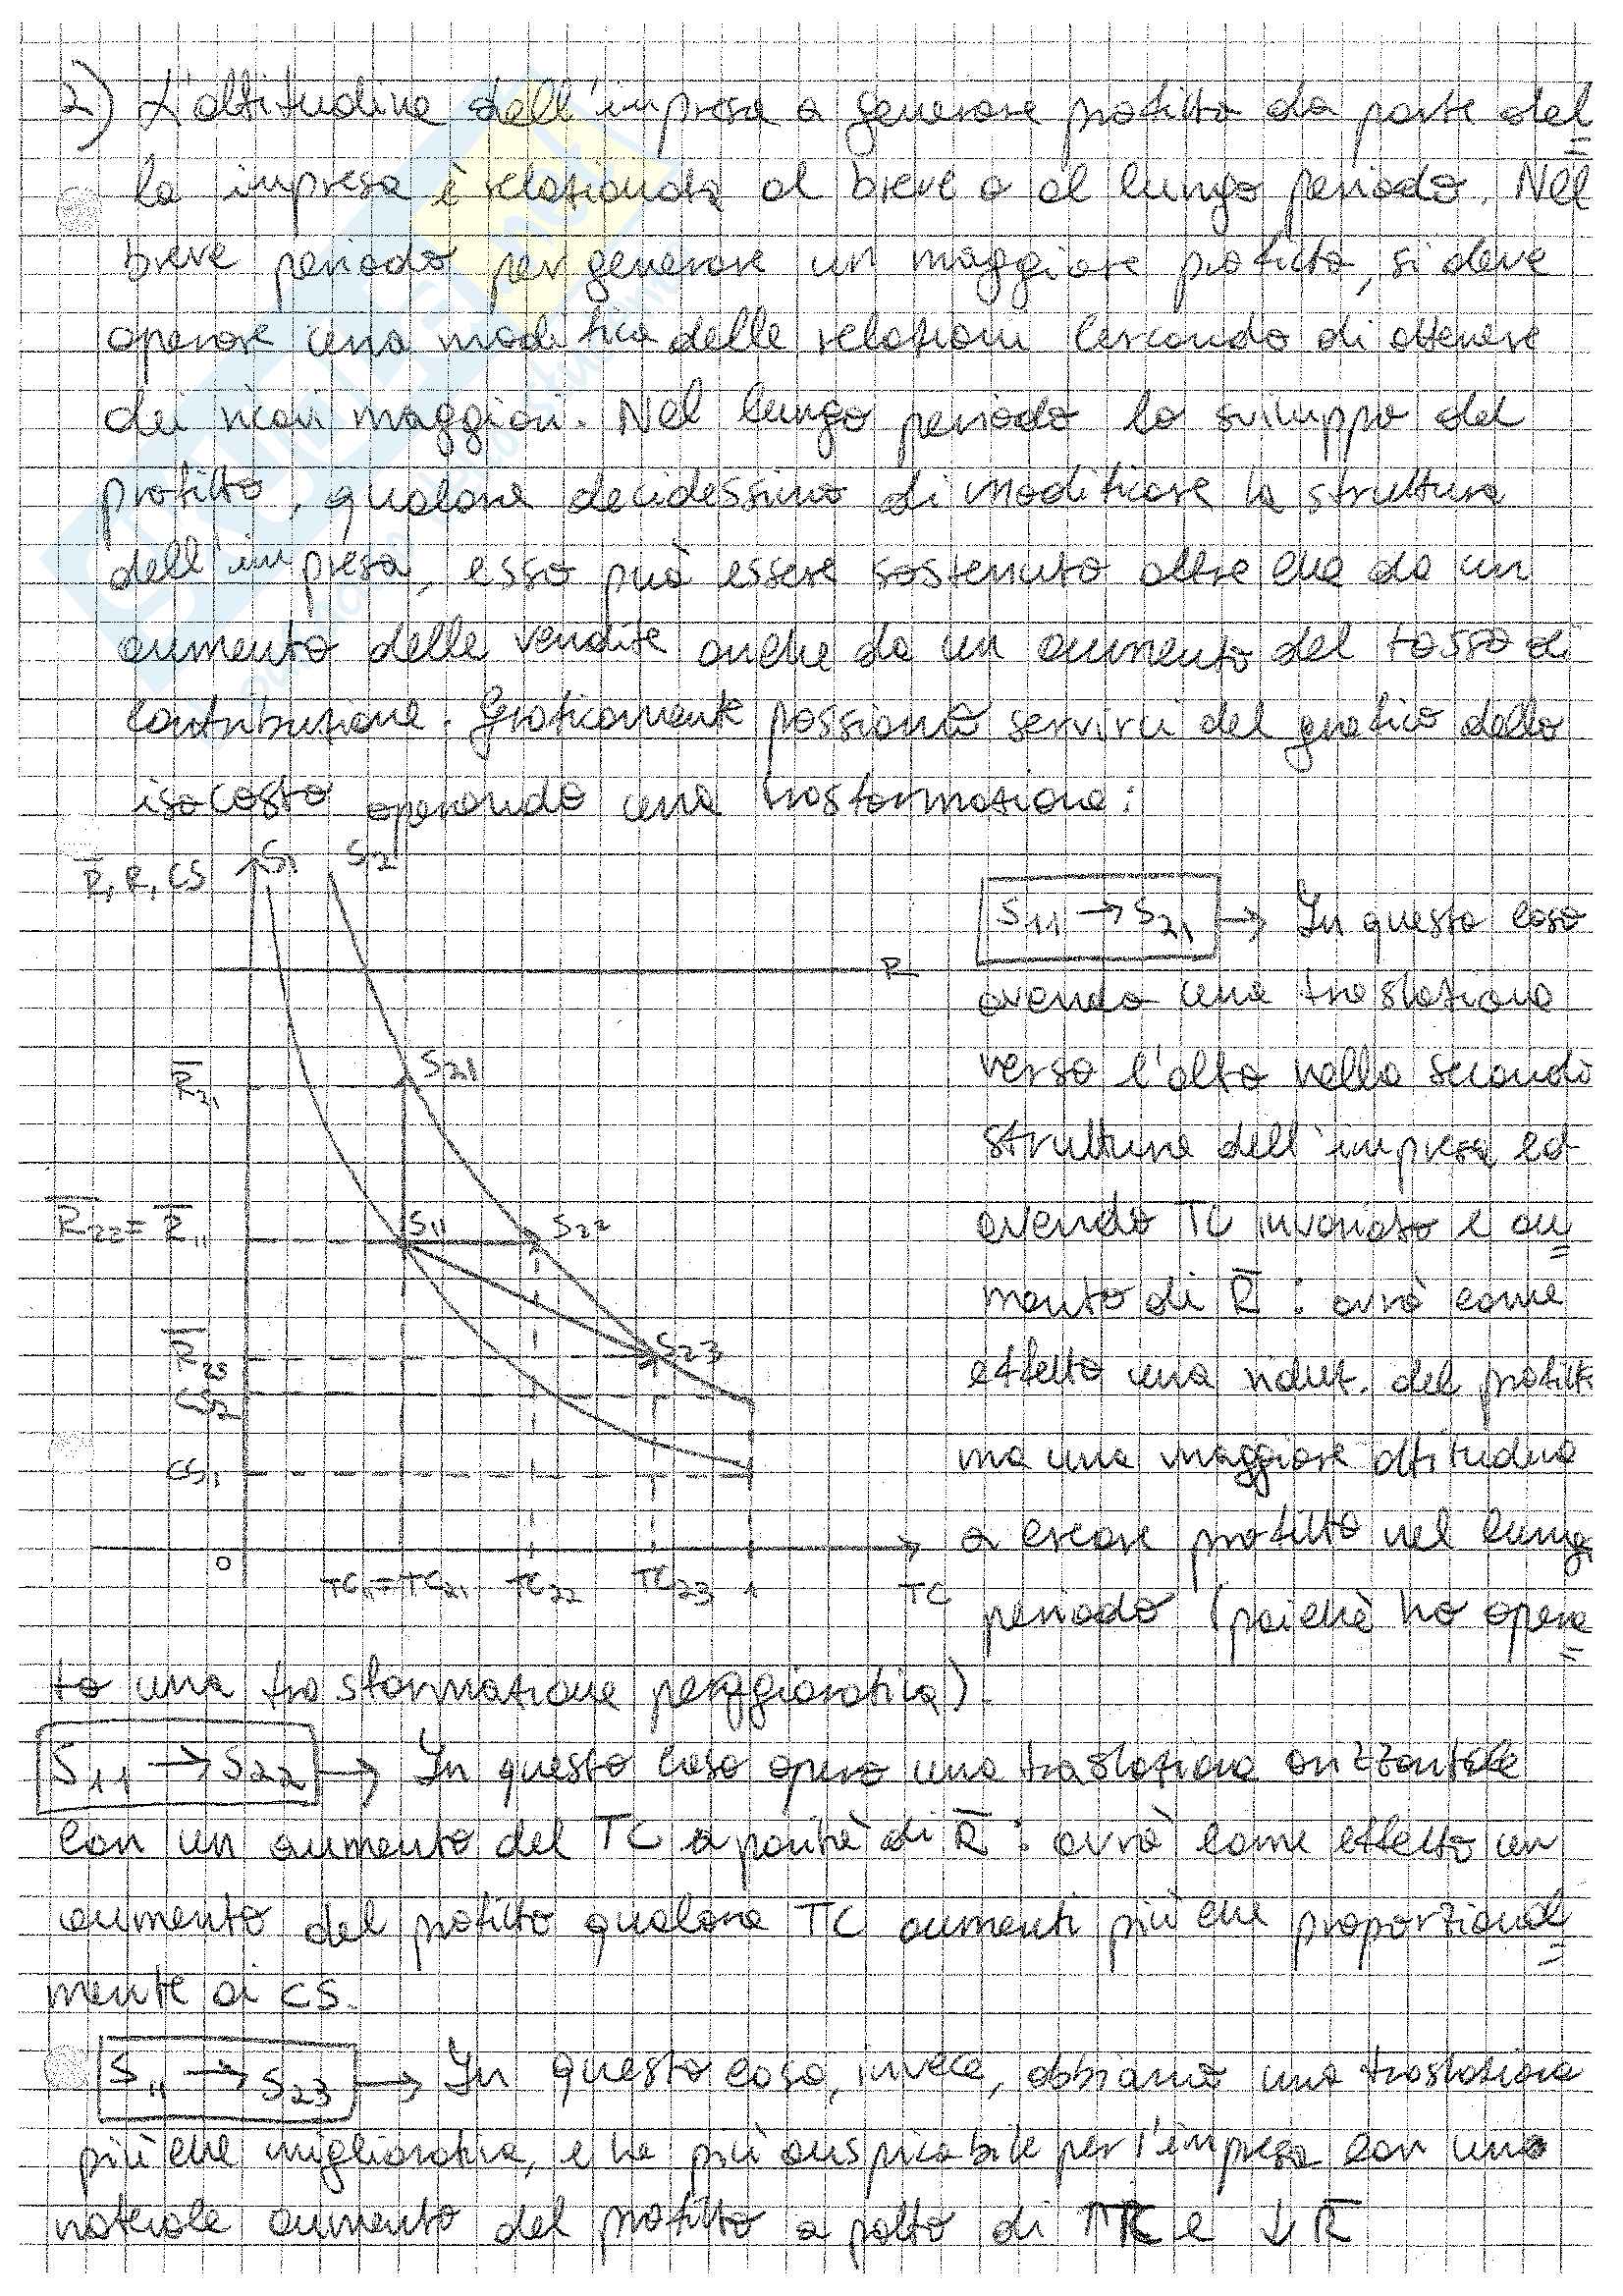 2) L'attitudine dell'impresa a generare profitto da parte del
la impresa è relazionata al breve o al lungo periodo. Nel
breve periodo per generare un maggiore profitto, si deve
operare una modifica delle relazioni cercando di ottenere
dei ricavi maggiori. Nel lungo periodo lo sviluppo del
profitto, qualora decidessimo di modificare la struttura
dell'impresa, esso può essere sostenuto oltre che da un
aumento delle vendite anche da un aumento del tasso di
contribuzione. Graficamente possiamo servirci del grafico dello
isocosto operando una trasformazione:
R̅, R, CS S1 S2
R
R̅21 S21
R̅22 = R̅11 S11 S22
R̅23 S23
CS2
CS1
O TC11 = TC21 TC22 TC23 1 TC
S11 → S21 → In questo caso
avendo una traslazione
verso l'alto nella seconda
struttura dell'impresa ed
avendo TC invariato e au
mento di R̅ : avrò come
effetto una riduz. del profitto
ma una maggiore attitudine
a creare profitto nel lungo
periodo (poichè ho opera
to una trasformazione peggiorativa).
S11 → S22 → In questo caso opero una traslazione orizzontale
con un aumento del TC a parità di R̅ : avrò come effetto un
aumento del profitto qualora TC aumenti più che proporzional
mente ai CS.
S11 → S23 → In questo caso, invece, abbiamo una traslazione
più che migliorativa, e la più auspicabile per l'impresa con una
notevole aumento del profitto a patto di ↑TC e ↓R̅